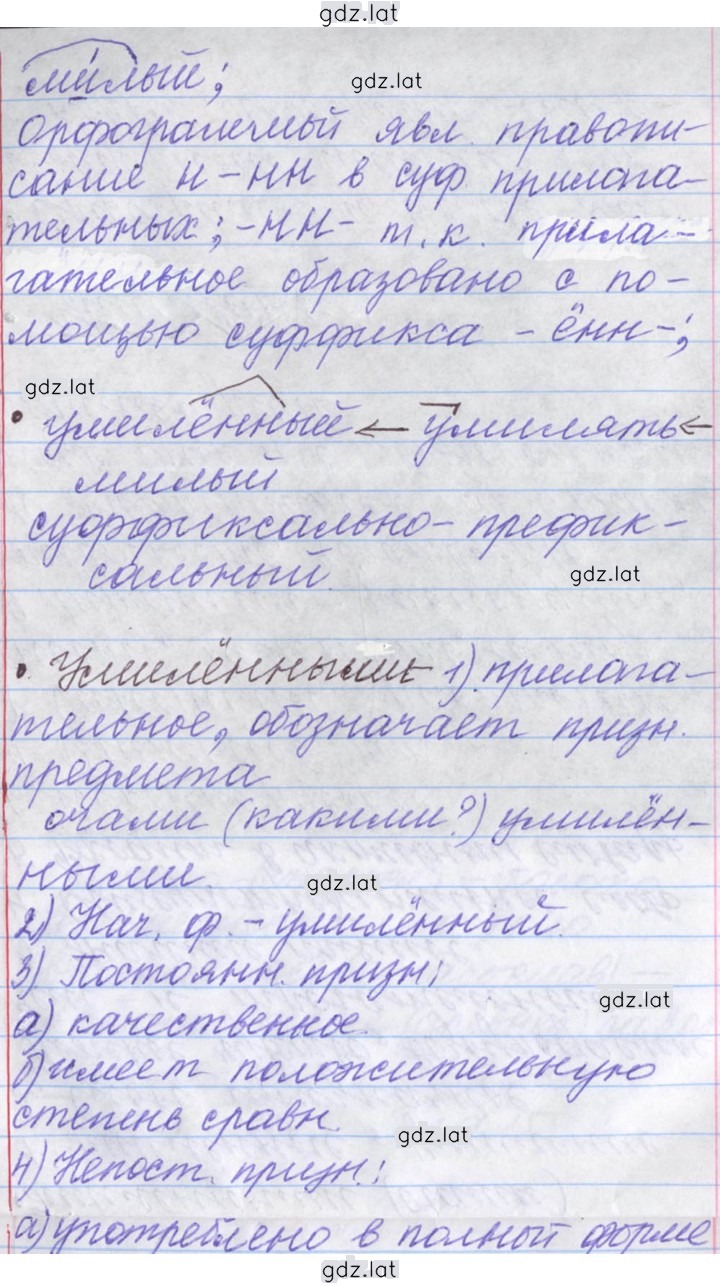 gdz.lat
милый;
gdz.lat
Орфограммой явл. правопи-
сание н-нн в суф прилага-
тельных; -нн- т.к. прила-
гательное образовано с по-
мощью суффикса -ённ-;
gdz.lat
• умилённый ← умилять ←
милый
суффиксально-префик-
сальный.
gdz.lat
• Умилёнными- 1) прилага-
тельное, обозначает призн.
предмета
очами (какими?) умилён-
ными.
gdz.lat
2) Нач. ф. - умилённый.
3) Постоянн. призн:
gdz.lat
а) качественное.
б) имеет положительную
степень сравн.
gdz.lat
4) Непост. призн.:
а) употреблено в полный форме
gdz.lat